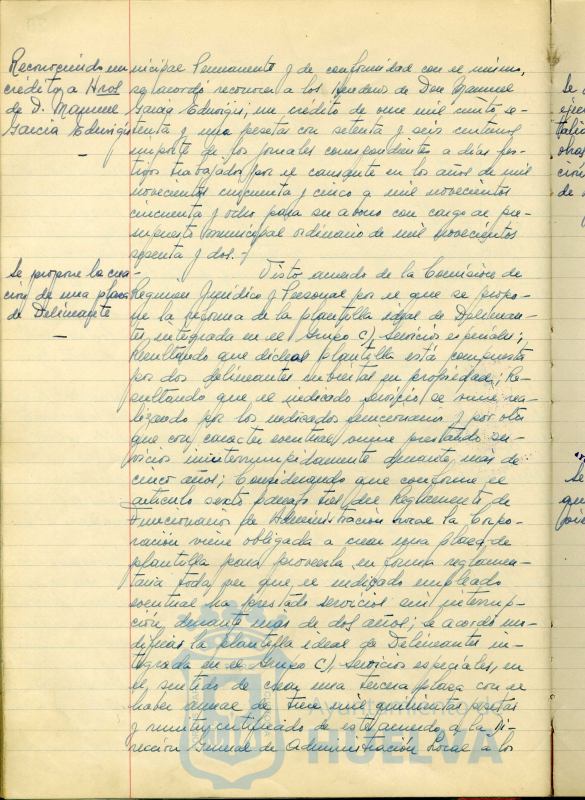 Reconociendo un
crédito a Hros
de D. Manuel
García Eduvigis
nicipal Permanente y de conformidad con el mismo,
se acordó reconocer a los herederos de Don Manuel
García Eduvigis, un crédito de once mil ciento se-
tenta y una pesetas con setenta y seis céntimos
importe de los jornales correspondientes a días fes-
tivos trabajados por el causante en los años de mil
novecientos cincuenta y cinco a mil novecientos
cincuenta y ocho para su abono con cargo al pre-
supuesto municipal ordinario de mil novecientos
sesenta y dos.-
Se propone la crea-
ción de una plaza
de Delineante
Visto acuerdo de la Comisión de
Régimen Jurídico y Personal por el que se propo-
ne la reforma de la plantilla ideal de Delinean-
tes integrada en el Grupo C) Servicios especiales;
Resultando que dicha plantilla está compuesta
por dos delineantes cubiertas en propiedad; Re-
sultando que el indicado servicio se viene rea-
lizando por los indicados funcionarios y por otro
que con carácter eventual viene prestando ser-
vicios ininterrumpidamente durante más de
cinco años; Considerando que conforme el
artículo sexto párrafo tres del Reglamento de
Funcionarios de Administración Local la Corpo-
ración viene obligada a crear una plaza de
plantilla para proveerla en forma reglamen-
taria toda vez que el indicado empleado
eventual ha prestado servicios sin interrup-
ción durante más de dos años; se acordó mo-
dificar la plantilla ideal de Delineantes in-
tegrada en el Grupo C), Servicios especiales, en
el sentido de crear una tercera plaza con el
haber anual de trece mil quinientas pesetas
y remitir certificado de este acuerdo a la Di-
rección General de Administración Local a los
Ayuntamiento
HUELVA